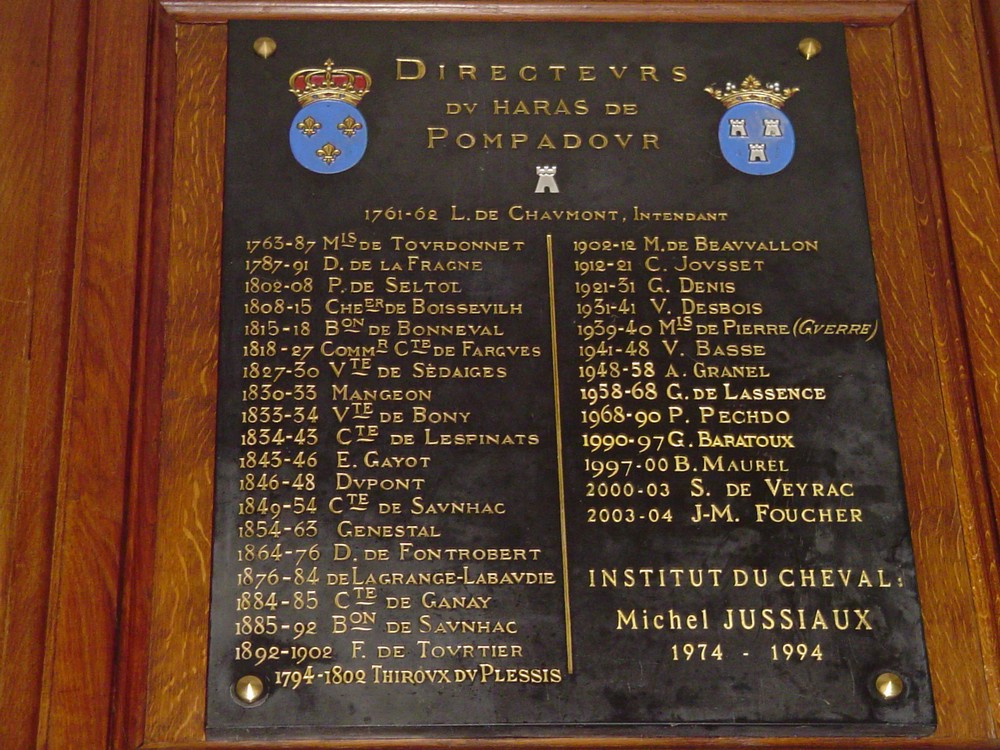 DIRECTEVRS
DV HARAS DE
POMPADOVR
1761-62 L. DE CHAVMONT, INTENDANT
1763-87 MIS DE TOVRDONNET
1787-91 D. DE LA FRAGNE
1802-08 P. DE SELTOL
1808-15 CHEER DE BOISSEVILH
1815-18 BON DE BONNEVAL
1818-27 COMMR CTE DE FARGVES
1827-30 VTE DE SÈDAIGES
1830-33 MANGEON
1833-34 VTE DE BONY
1834-43 CTE DE LESPINATS
1843-46 E. GAYOT
1846-48 DVPONT
1849-54 CTE DE SAVNHAC
1854-63 GENESTAL
1864-76 D. DE FONTROBERT
1876-84 DE LAGRANGE-LABAVDIE
1884-85 CTE DE GANAY
1885-92 BON DE SAVNHAC
1892-1902 F. DE TOVRTIER
1794-1802 THIROVX DV PLESSIS
1902-12 M. DE BEAVVALLON
1912-21 C. JOVSSET
1921-31 G. DENIS
1931-41 V. DESBOIS
1939-40 MIS DE PIERRE (GVERRE)
1941-48 V. BASSE
1948-58 A. GRANEL
1958-68 G. DE LASSENCE
1968-90 P. PECHDO
1990-97 G. BARATOUX
1997-00 B. MAUREL
2000-03 S. DE VEYRAC
2003-04 J-M. FOUCHER
INSTITUT DU CHEVAL:
Michel JUSSIAUX
1974 - 1994